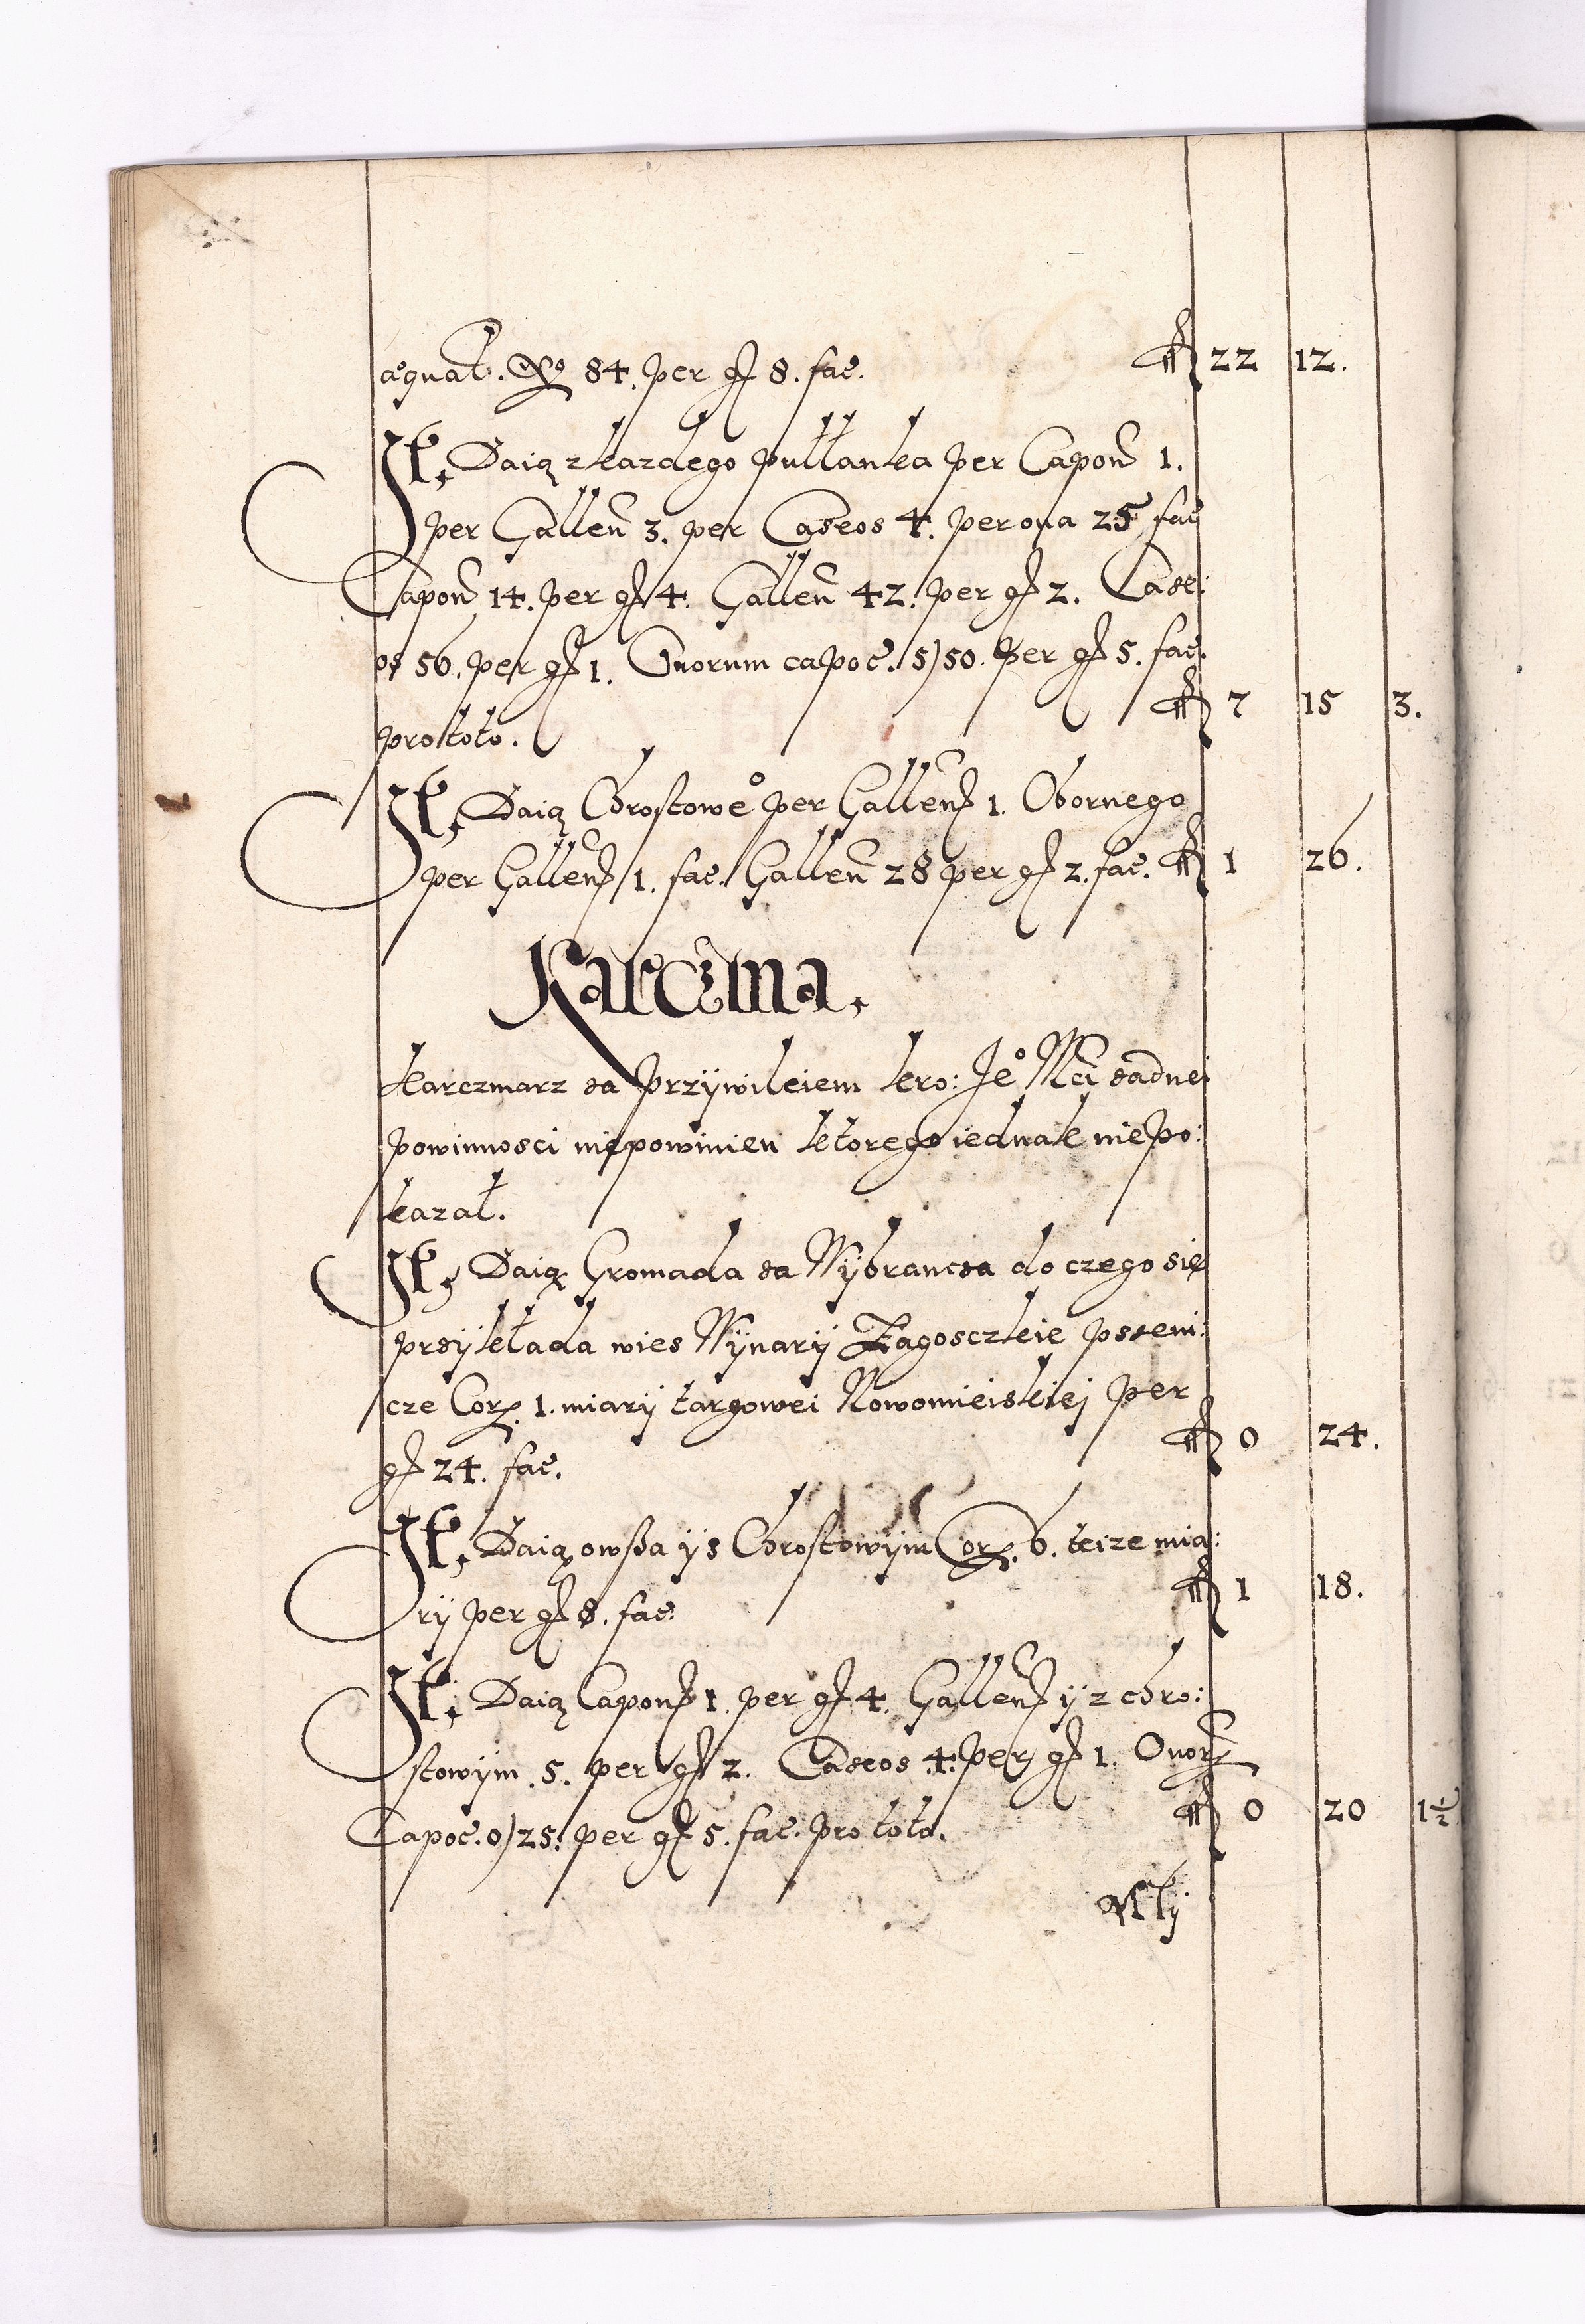 æqual. No 84. per gr 8. fac. fl 22 12.
It, Daią z każdego pułłanka per Capon 1.
per Gallen 3. per Caseos 4. per oua 25 fac
Capon 14. per gr 4. Gallen 42. per gr 2. Case:
os 56. per gr 1. Ouorum capoc. 5)50. per gr 5. fac.
pro toto. fl 7 15 3.
It, Daią Chrostowe° per Gallens 1. Obornego
per Gallens 1. fac. Gallen 28 per gr 2. fac. fl 1 26.
Karczma.
Karczmarz za Przywileiem kro: Je° Mci żadnei
powinnosci niepowinien ktorego iednak niepo:
kazał.
It, Daią Gromada za Wybranca do czego się
przykłada wies Wynary Zagosczkie pszeni:
cze Cor. 1. miary targowei Nowomieiskiej per
gr 24. fac. fl 0 24.
It, Daią owsa y s Chrostowym Cor. 6. teize mia:
ry per gr 8. fac. fl 1 18.
It, Daią Capons 1. per gr 4. Gallens y z chro:
stowym 5. per gr 2. Caseos 4. per gr 1. Ouor
Capoc. 0)25. per gr 5. fac. pro toto. fl 0 20 1½
Mły